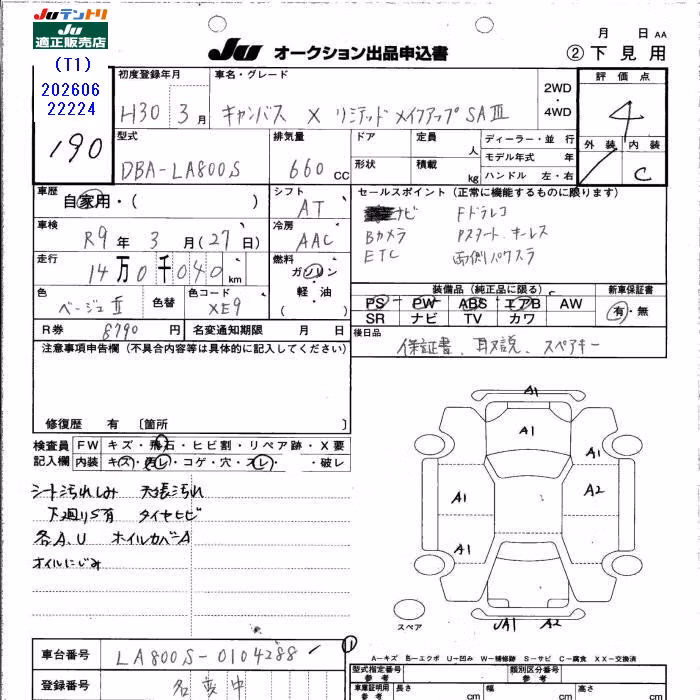 JUテントリ
JU
適正販売店
(T1)
202606
22224
190
JU オークション出品申込書
月 日 AA
② 下見用
初度登録年月 車名・グレード
H30 3月 キャンバス X リミテッド メイクアップ SAⅢ
2WD
・
4WD
評価点
4
外装 内装
C
型式 排気量 ドア 定員 人 ディーラー・並行
DBA-LA800S 660 CC 形状 積載 kg モデル年式 年
ハンドル 左・右
車歴 自家用・( )
シフト AT
セールスポイント (正常に機能するものに限ります)
ナビ Fドラレコ
Bカメラ Pスタート.キーレス
ETC 両側パワスラ
車検 R9年 3月(27日)
冷房 AAC
走行 14万0千040 km
燃料 ガソリン
・
軽・油
( )
色 ベージュⅡ 色替 色コード XE9
装備品 (純正品に限る) 新車保証書
PS PW ABS エアB AW 有・無
SR ナビ TV カワ
R券 8790円 名変通知期限 月 日
後日品
保証書、取説、スペアキー
注意事項申告欄 (不具合内容等は具体的に記入してください)
修復歴 有 〔箇所 〕
検査員 FW キズ・飛石・ヒビ割・リペア跡・X要
記入欄 内装 キズ・汚レ・コゲ・穴・スレ・ ・破レ
シート汚れしみ 天張汚れ
下廻りS有 タイヤヒビ
各A.U オイルカバーA
オイルにじみ
A1
A1
A1
A1 A2
A1
スペア UA1 A2
A-キズ E-エクボ U-凹み W-補修跡 S-サビ C-腐食 XX-交換済
車台番号 LA800S-0104288
①
型式指定番号 類別区分番号
参考
登録番号 名変中
車庫証明用 長さ 幅 高さ
参考 cm cm cm